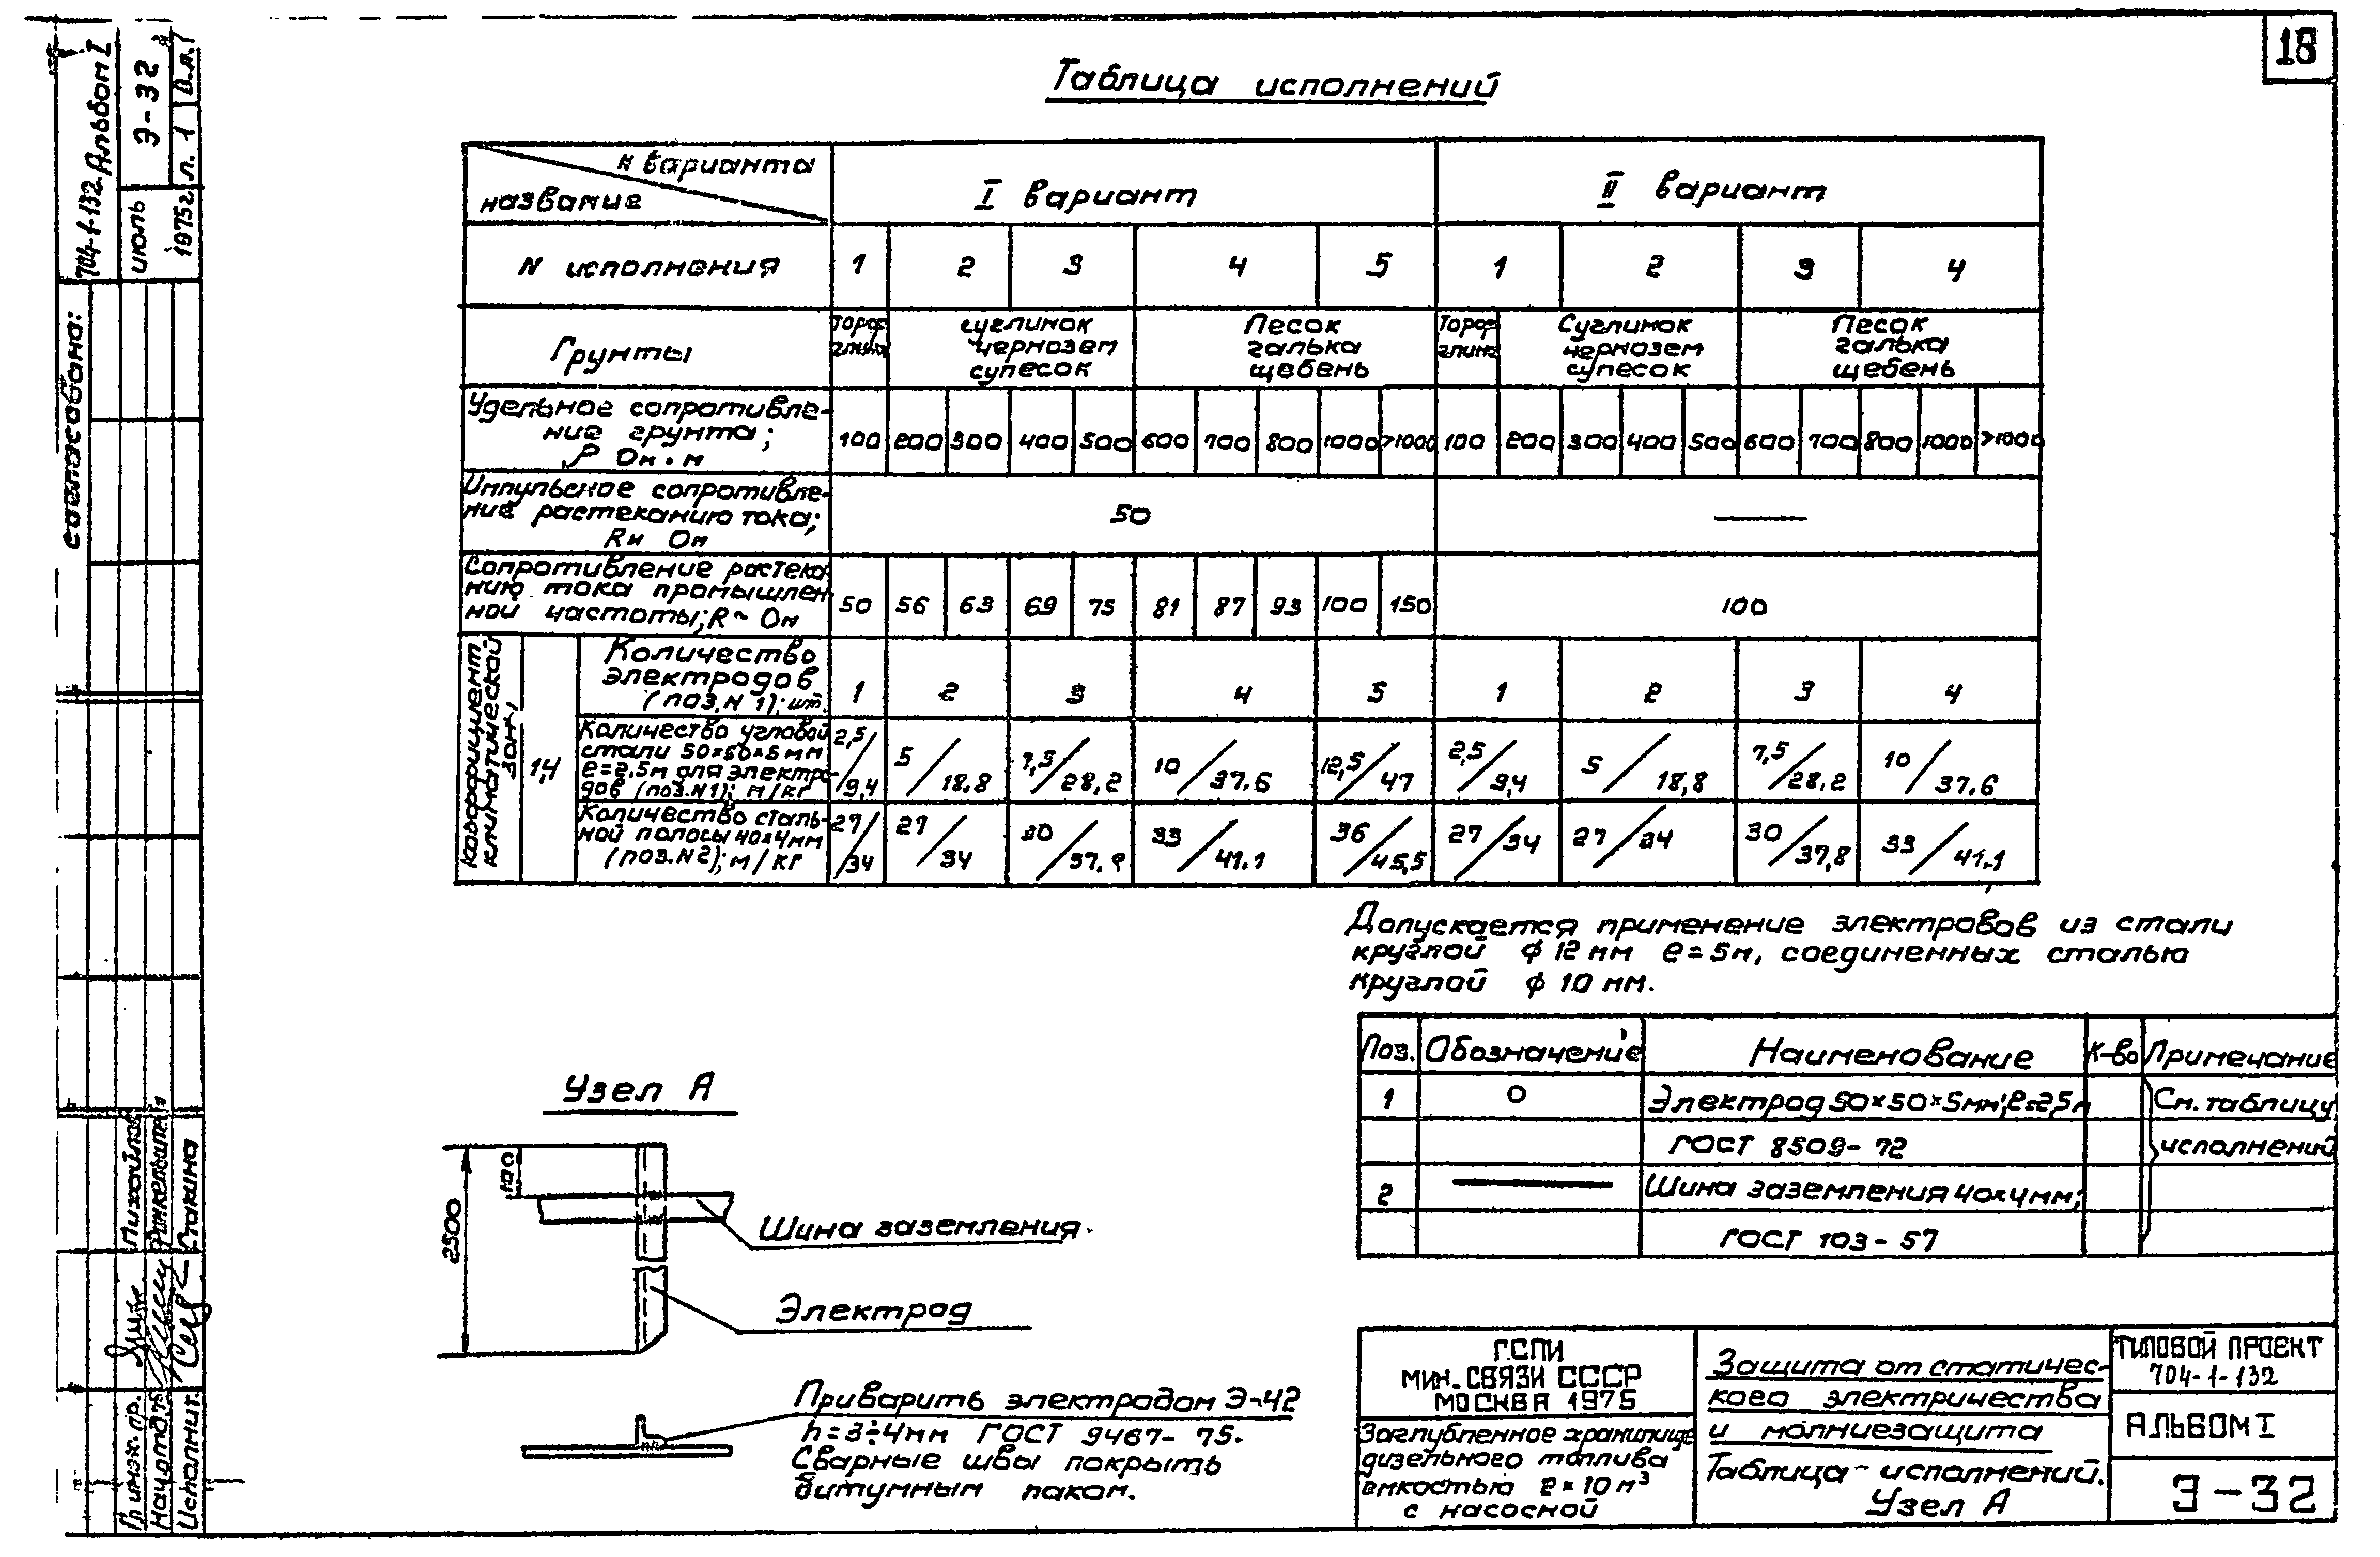 18
Таблица исполнений
N варианта
название
I вариант
II вариант
N исполнения
1 2 3 4 5 1 2 3 4
Грунты
Торф глина
суглинок
чернозем
супесок
Песок
галька
щебень
Торф глина
Суглинок
чернозем
супесок
Песок
галька
щебень
Удельное сопротивле-
ние грунта;
ρ Ом·м
100 200 300 400 500 600 700 800 1000 >1000 100 200 300 400 500 600 700 800 1000 >1000
Импульсное сопротивле-
ние растеканию тока;
Rи Ом
50
—
Сопротивление растека-
нию тока промышлен-
ной частоты; R~ Ом
50 56 63 69 75 81 87 93 100 150 100
Коэффициент
климатической
зоны,
1,4
Количество
электродов
(поз.N 1); шт.
1 2 3 4 5 1 2 3 4
Количество угловой
стали 50×50×5 мм
ℓ=2.5м для электро-
дов (поз.N1); м/кг
2,5/9,4 5/18,8 7,5/28,2 10/37,6 12,5/47 2,5/9,4 5/18,8 7,5/28,2 10/37,6
Количество сталь-
ной полосы 40х4мм
(поз.N2); м/кг
27/34 27/34 30/37,8 33/41,1 36/45,5 27/34 27/34 30/37,8 33/41,1
Допускается применение электродов из стали
круглой ϕ 12 мм ℓ=5м, соединенных сталью
круглой ϕ 10 мм.
Поз. Обозначение Наименование К-во Примечание
1 О Электрод 50×50×5мм; ℓ=2,5м См. таблицу
ГОСТ 8509-72 исполнений
2 Шина заземления 40х4мм;
ГОСТ 103-57
Узел А
2500
100
Шина заземления.
Электрод
Приварить электродом Э-42
h=3÷4мм ГОСТ 9467-75.
Сварные швы покрыть
битумным лаком.
ГСПИ
МИН. СВЯЗИ СССР
МОСКВА 1975
Заглубленное хранилище
дизельного топлива
емкостью 2×10 м³
с насосной
Защита от статичес-
кого электричества
и молниезащита
Таблица исполнений.
Узел А
ТИПОВОЙ ПРОЕКТ
704-1-132
АЛЬБОМ I
Э-32
704-1-132. Альбом I
Э-32
июль
1975г. л. 1
Согласовано:
Гл. инж. пр. Михайлов
Нач. отд.
Исполнит.